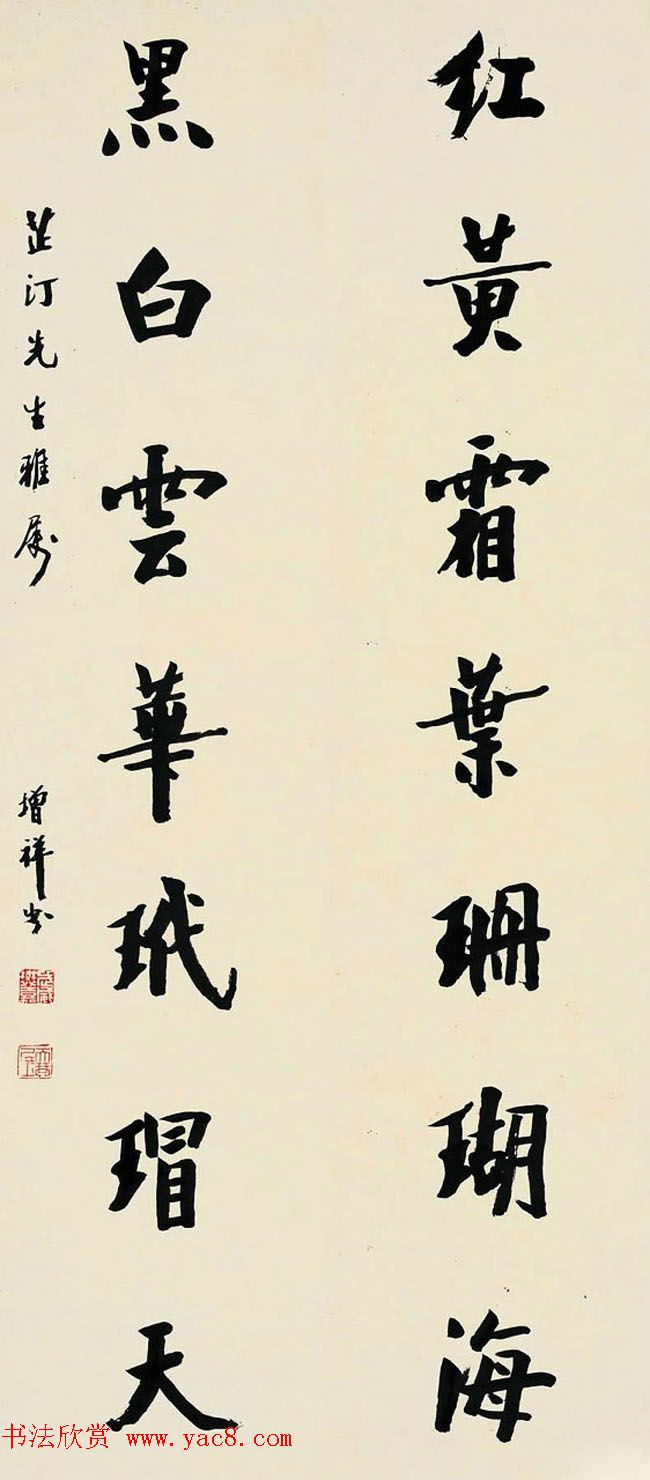 红黄霜葉珊瑚海
黑白雲華玳瑁天
芷汀先生雅屬
增祥
书法欣赏 www.yac8.com